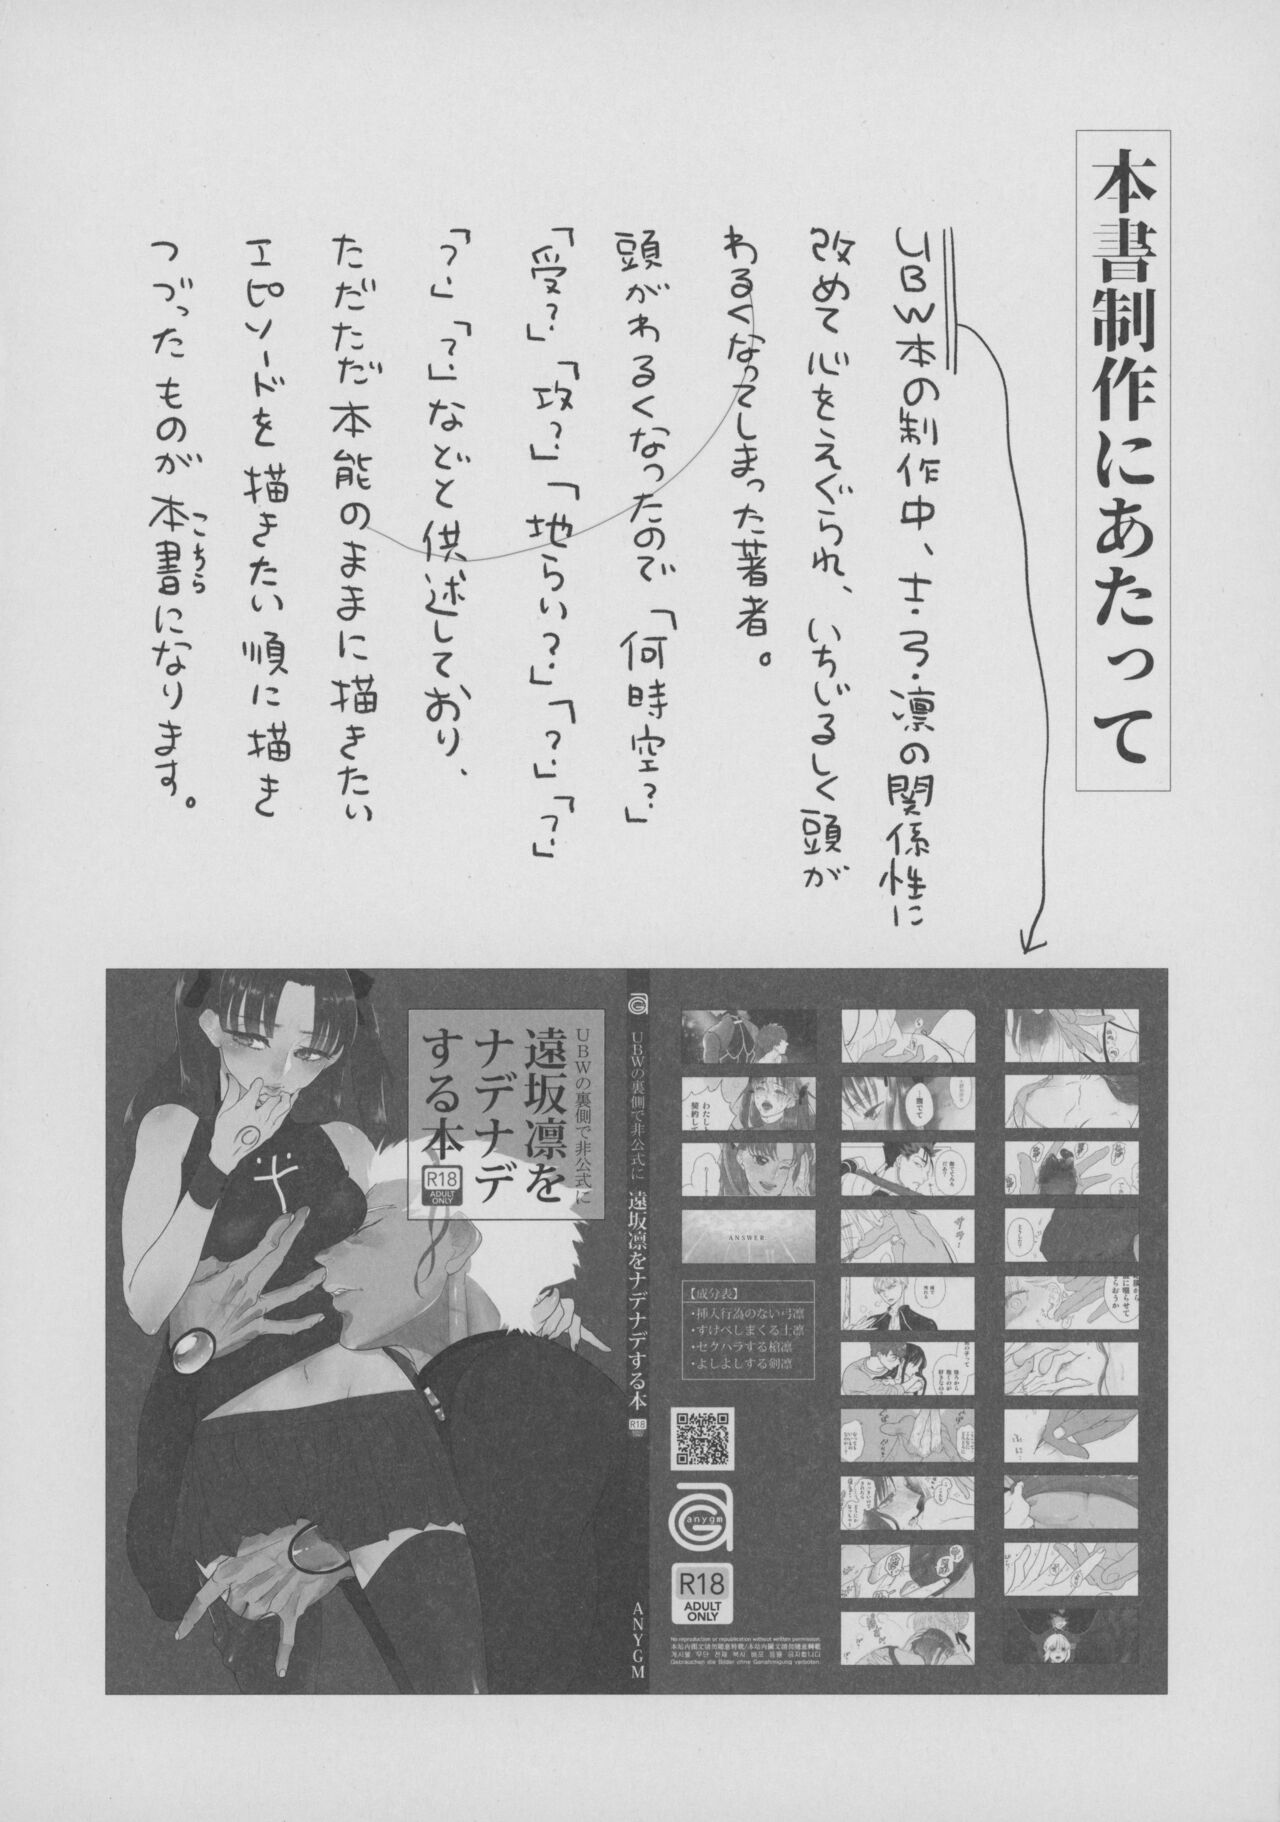 本書制作にあたって
UBW本の制作中、士・弓・凛の関係性に
改めて心をえぐられ、いちじるしく頭が
わるくなってしまった著者。
頭がわるくなったので「何時空?」
「受?」「攻?」「地らい?」「?」「?」
「?」「?」などと供述しており、
ただただ本能のままに描きたい
エピソードを描きたい順に描き
つづったものが本書になります。
こちら
UBWの裏側で非公式に
遠坂凛を
ナデナデ
する本
R18
ADULT
ONLY
ANYGM
UBWの裏側で非公式に 遠坂凛をナデナデする本
R18
ANYGM
わたしと
契約して
ANSWER
【成分表】
・挿入行為のない弓凛
・すけべしまくる士凛
・セクハラする槍凛
・よしよしする剣凛
anygm
R18
ADULT
ONLY
No reproduction or republication without written permission.
Gebrauchen die Bilder ohne Genehmigung verboten.